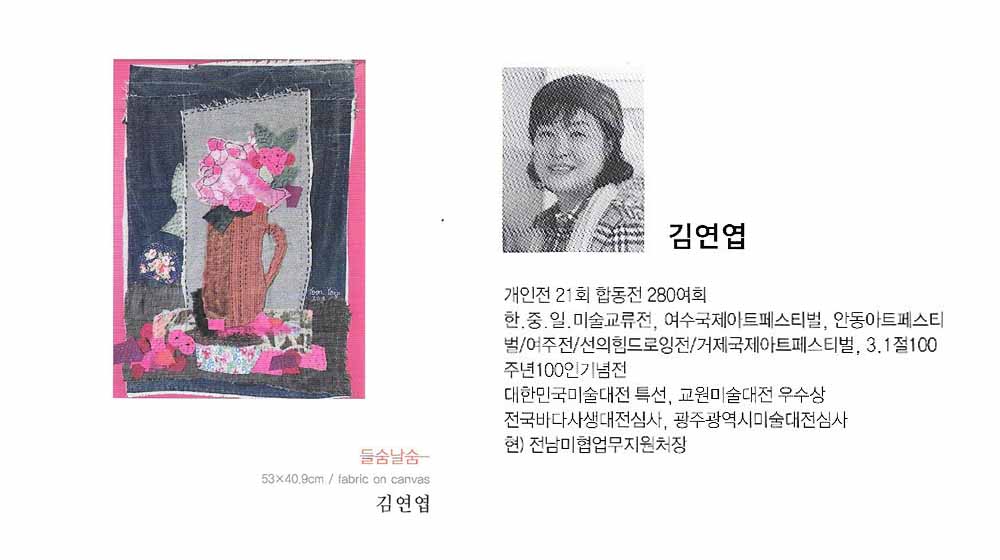 들숨날숨
53×40.9cm / fabric on canvas
김연엽
김연엽
개인전 21회 합동전 280여회
한.중.일.미술교류전, 여수국제아트페스티벌, 안동아트페스티
벌/여주전/선의힘드로잉전/거제국제아트페스티벌, 3.1절100
주년100인기념전
대한민국미술대전 특선, 교원미술대전 우수상
전국바다사생대전심사, 광주광역시미술대전심사
현) 전남미협업무지원처장